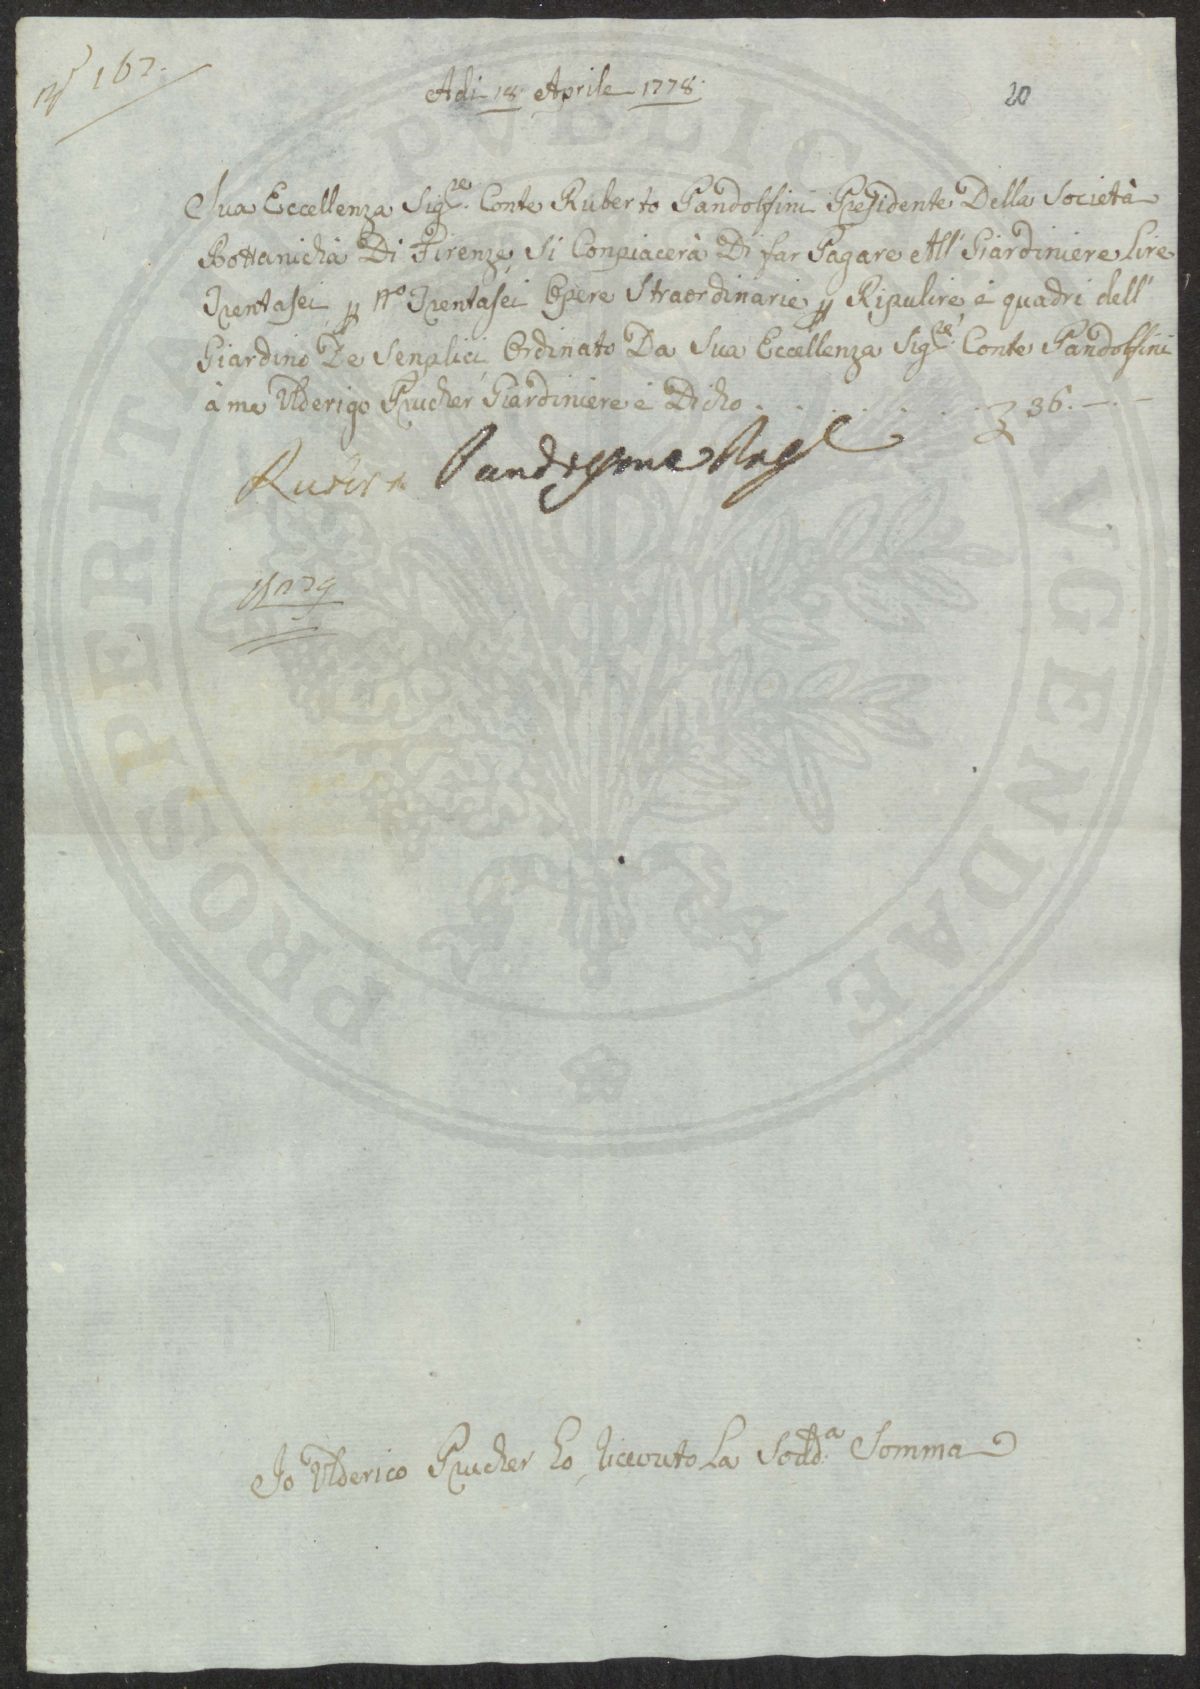 N° 162.
Adi 18 Aprile 1778.
20
Sua Eccellenza Sig.re Conte Ruberto Pandolfini Presidente Della Società
Bottanicha Di Firenze, Si Conpiacerà Di far Pagare All' Giardiniere lire
Trentasei p N° Trentasei Opere Straordinarie p Ripulire è quadri dell'
Giardino De Senplici, Ordinato Da Sua Eccellenza Sig.re Conte Pandolfini
à me Ulderigo Prucher Giardiniere è Dicho . . . . . . . . £ 36.—.—
Ruberto Pandolfini
Io Ulderico Prucher ho riceuto La Sodd.a Somma
PUBLICAE PROSPERITATI AVGENDAE